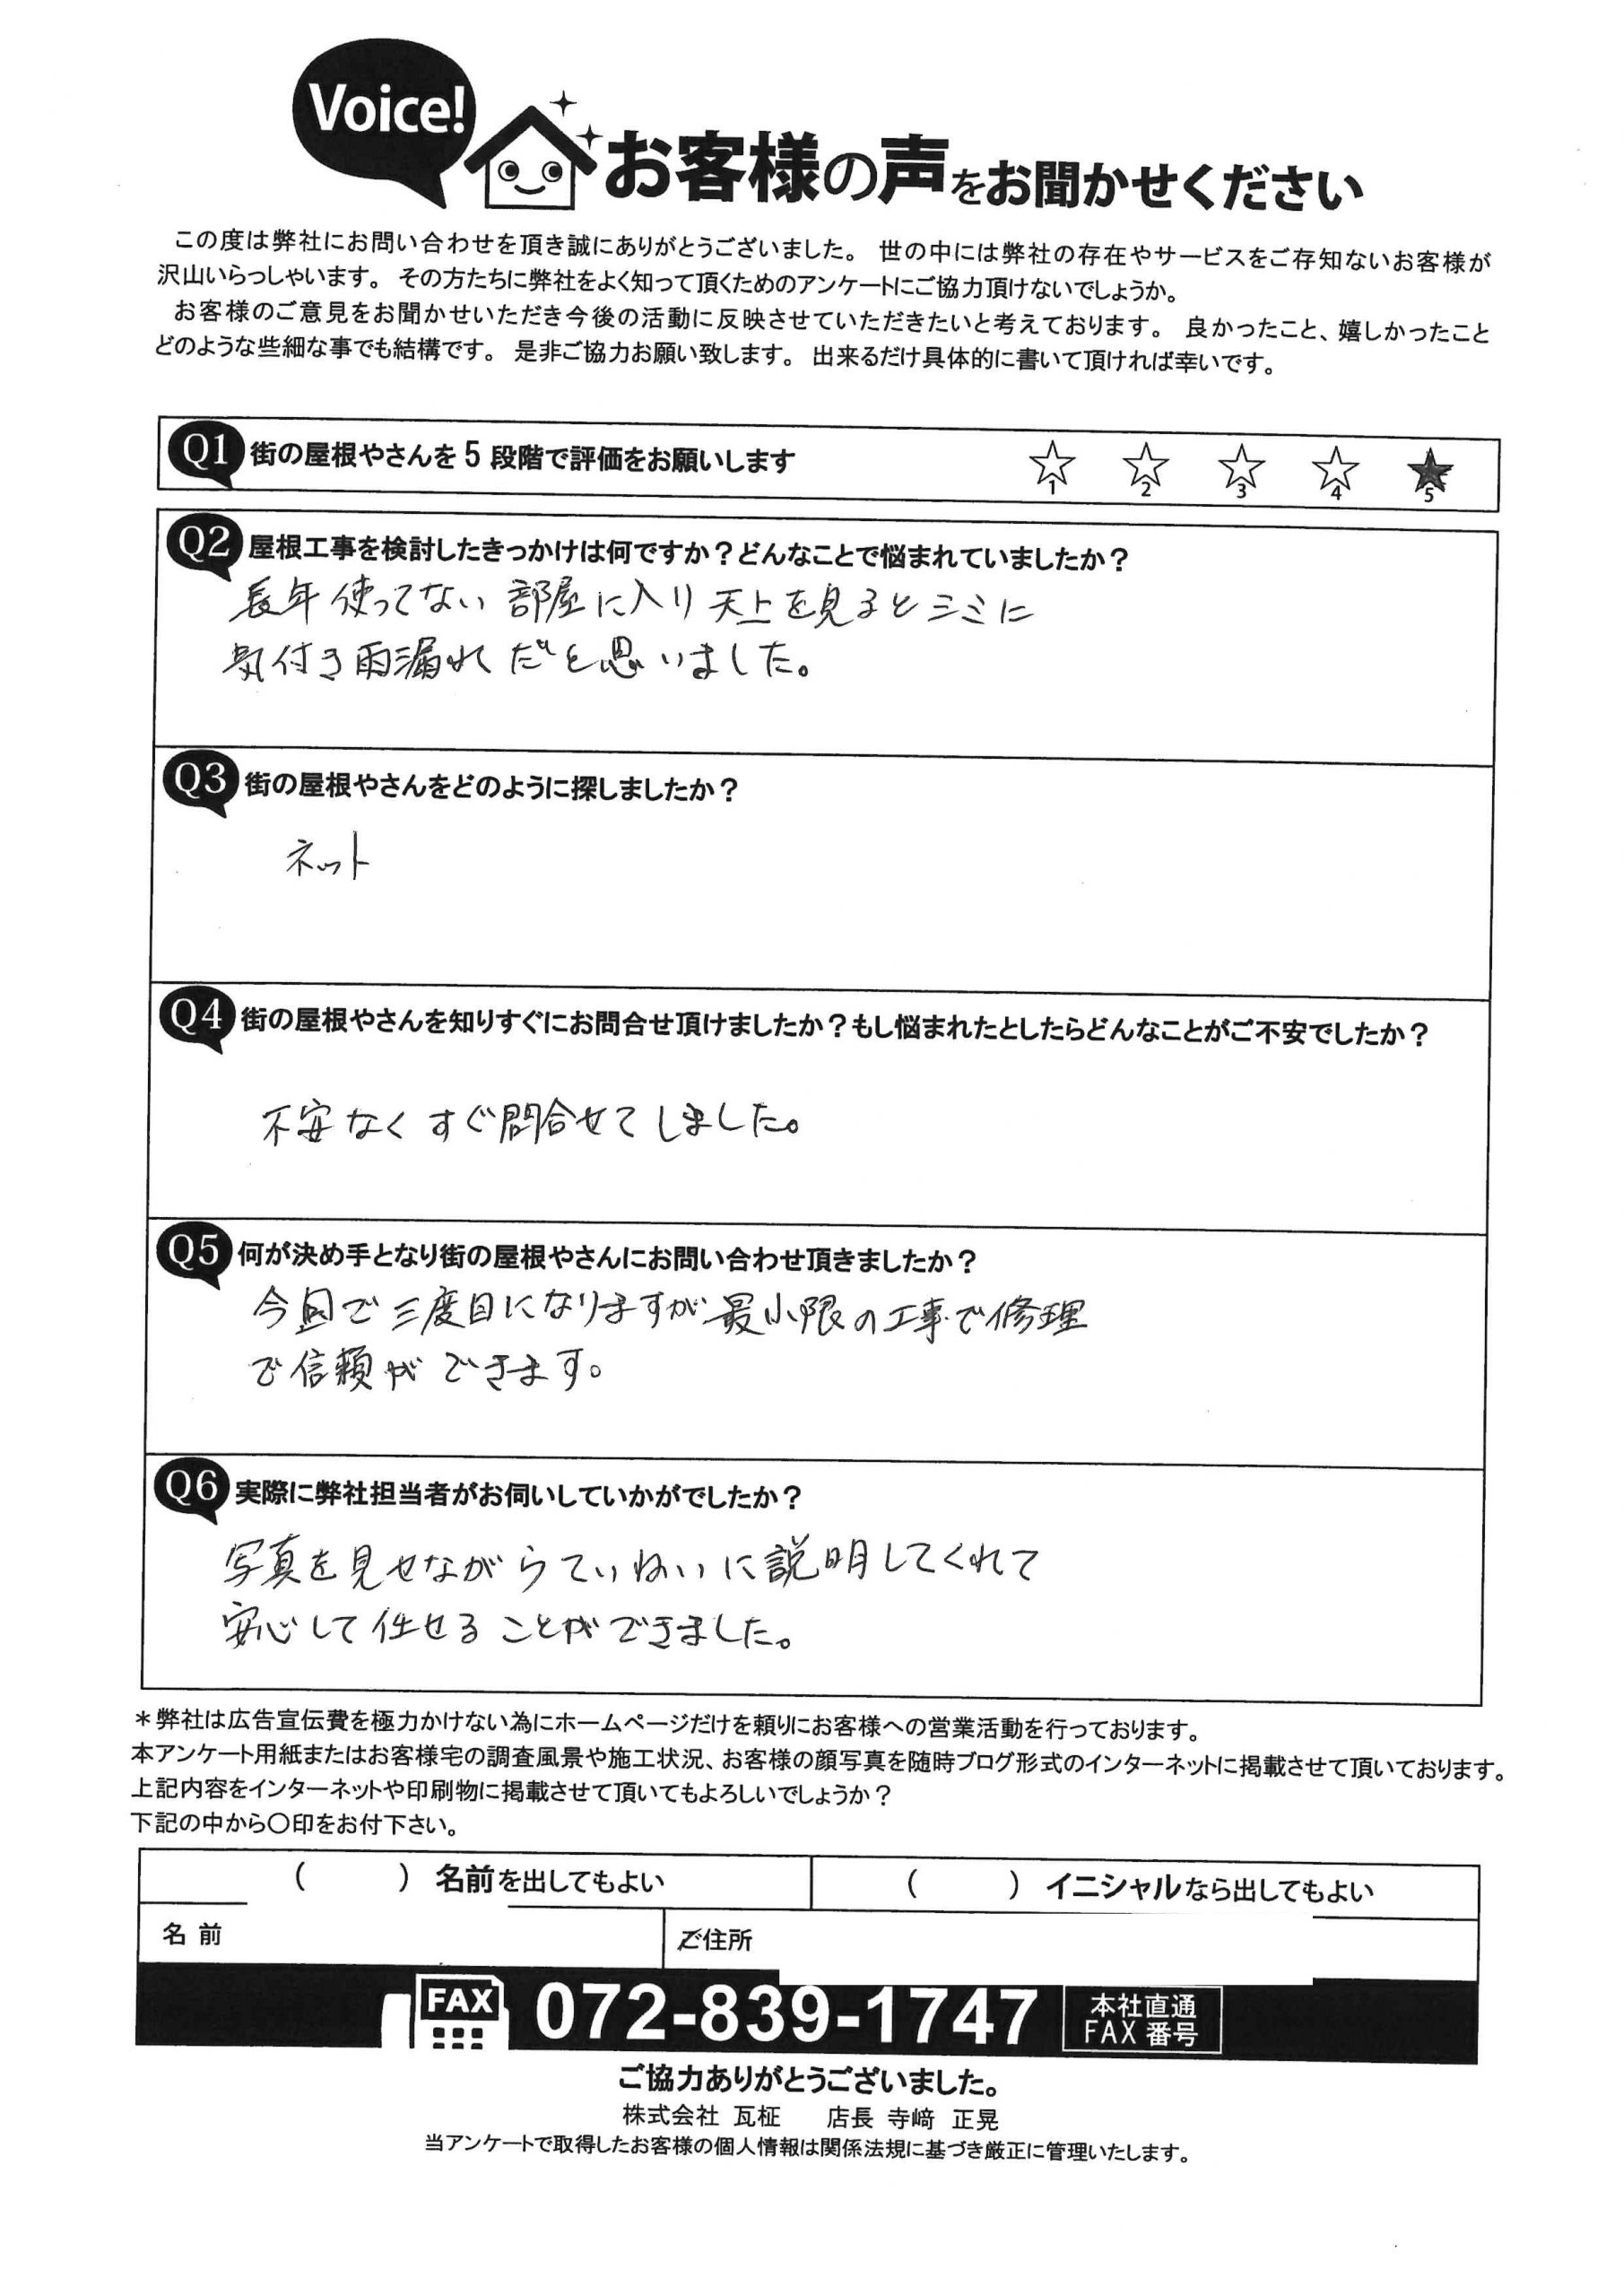 Voice!
お客様の声をお聞かせください
この度は弊社にお問い合わせを頂き誠にありがとうございました。 世の中には弊社の存在やサービスをご存知ないお客様が
沢山いらっしゃいます。 その方たちに弊社をよく知って頂くためのアンケートにご協力頂けないでしょうか。
お客様のご意見をお聞かせいただき今後の活動に反映させていただきたいと考えております。 良かったこと、嬉しかったこと
どのような些細な事でも結構です。 是非ご協力お願い致します。 出来るだけ具体的に書いて頂ければ幸いです。
Q1 街の屋根やさんを 5 段階で評価をお願いします ☆ ☆ ☆ ☆ ★
1 2 3 4 5
Q2 屋根工事を検討したきっかけは何ですか?どんなことで悩まれていましたか?
長年使ってない部屋に入り天上を見るとシミに
気付き雨漏れだと思いました。
Q3 街の屋根やさんをどのように探しましたか?
ネット
Q4 街の屋根やさんを知りすぐにお問合せ頂けましたか?もし悩まれたとしたらどんなことがご不安でしたか?
不安なくすぐ問合せてしました。
Q5 何が決め手となり街の屋根やさんにお問い合わせ頂きましたか?
今回で三度目になりますが最小限の工事で修理
で信頼ができます。
Q6 実際に弊社担当者がお伺いしていかがでしたか?
写真を見せながらていねいに説明してくれて
安心して任せることができました。
*弊社は広告宣伝費を極力かけない為にホームページだけを頼りにお客様への営業活動を行っております。
本アンケート用紙またはお客様宅の調査風景や施工状況、お客様の顔写真を随時ブログ形式のインターネットに掲載させて頂いております。
上記内容をインターネットや印刷物に掲載させて頂いてもよろしいでしょうか?
下記の中から〇印をお付下さい。
( ) 名前を出してもよい ( ) イニシャルなら出してもよい
名 前 ご住所
FAX 072-839-1747 本社直通
FAX 番号
ご協力ありがとうございました。
株式会社 瓦柾 店長 寺﨑 正晃
当アンケートで取得したお客様の個人情報は関係法規に基づき厳正に管理いたします。